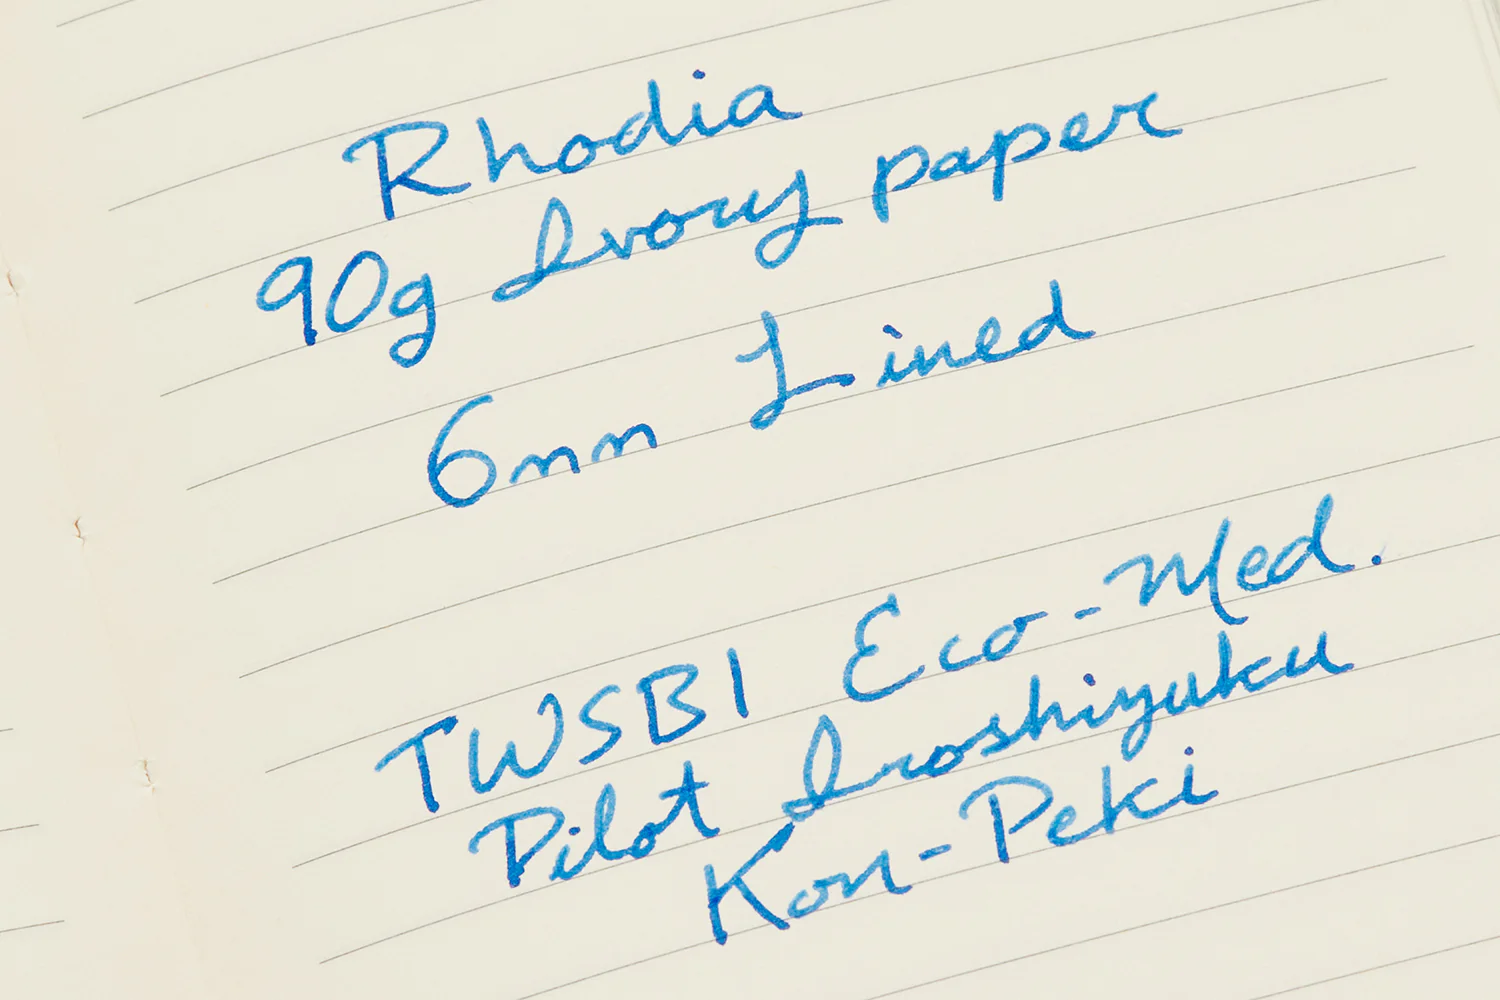 Rhodia
90g Ivory paper
6mm Lined
TWSBI Eco-Med.
Pilot Iroshizuku
Kon-Peki